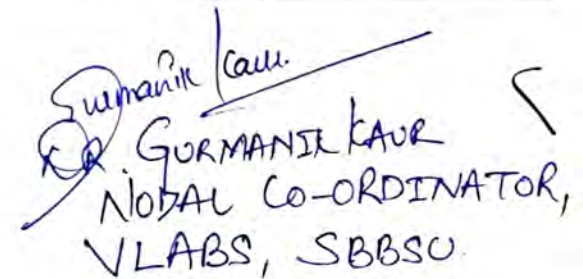 Gurmanik Kaur.
DR. GURMANIK KAUR
NODAL CO-ORDINATOR,
VLABS, SBBSU.